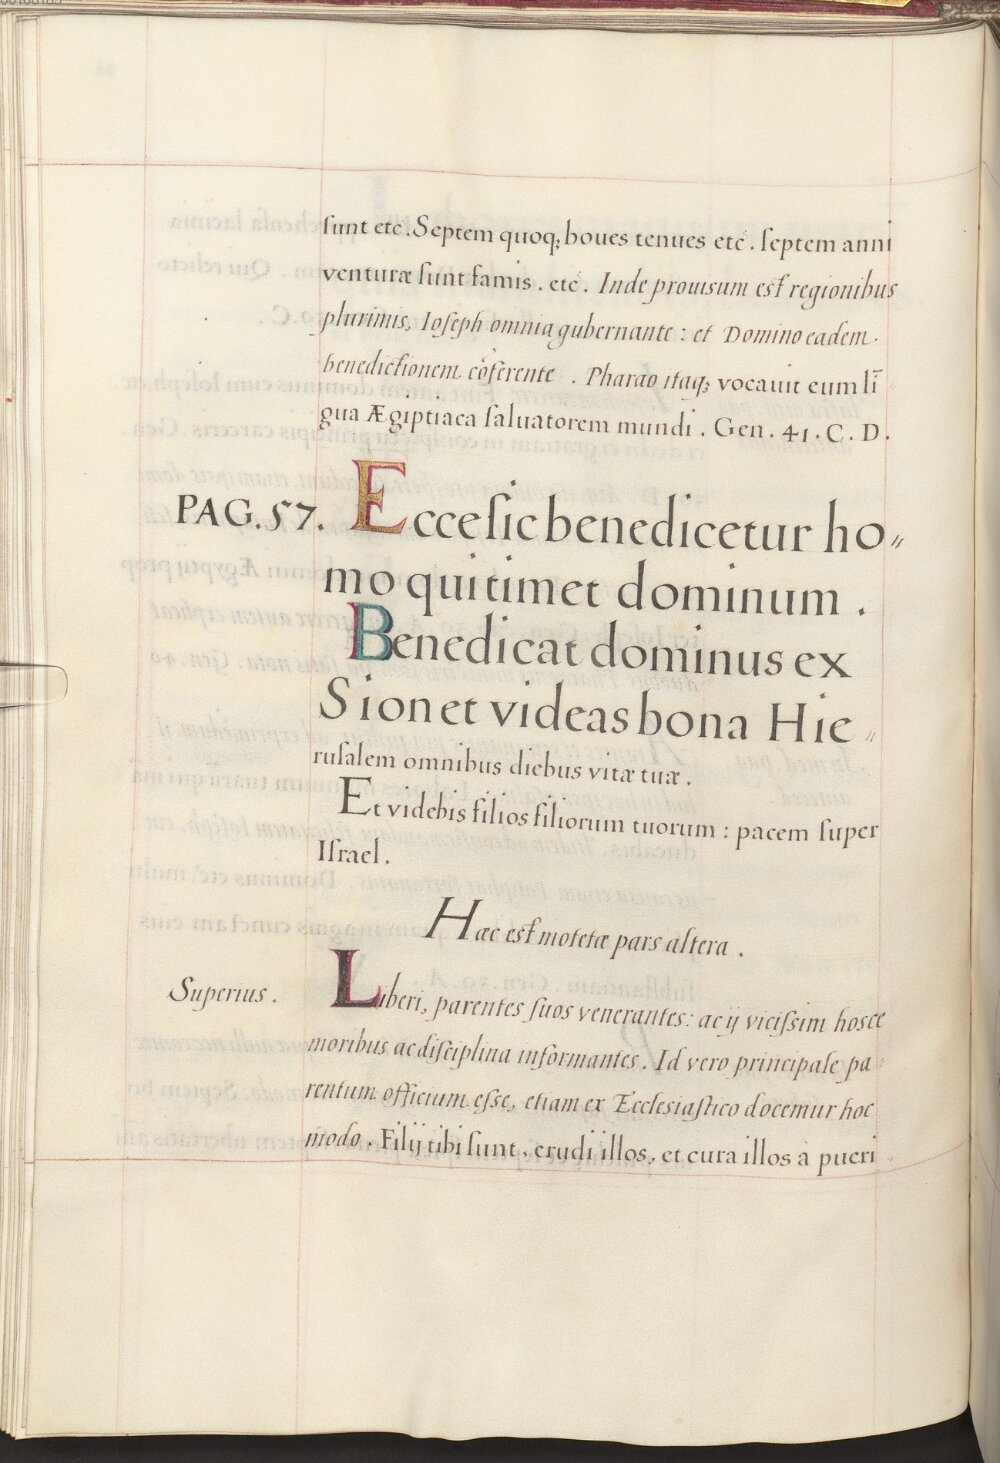 ſunt etc. Septem quoq; boues tenues etc. ſeptem anni
venturæ ſunt famis. etc. Inde prouisum eſt regionibus
plurimis, Ioſeph omnia gubernante: et Domino eadem.
benedictionem cōferente. Pharao itaq; vocavit eum lī
gua Ægiptiaca ſaluatorem mundi. Gen. 41. C. D.
PAG. 57. Ecce ſic benedicetur ho〃
mo qui timet dominum.
Benedicat dominus ex
Sion et videas bona Hie〃
ruſalem omnibus diebus vitæ tuæ.
Et videbis filios filiorum tuorum: pacem ſuper
Iſrael.
Hæc eſt motetæ pars altera.
Superius. Liberi, parentes ſuos venerantes: ac ij viciſsim hosce
moribus ac diſciplina informantes. Id vero principale pa〃
rentum officium eſse, etiam ex Eccleſiaſtico docemur hoc
modo. Filij tibi ſunt, erudi illos, et cura illos a pueri〃